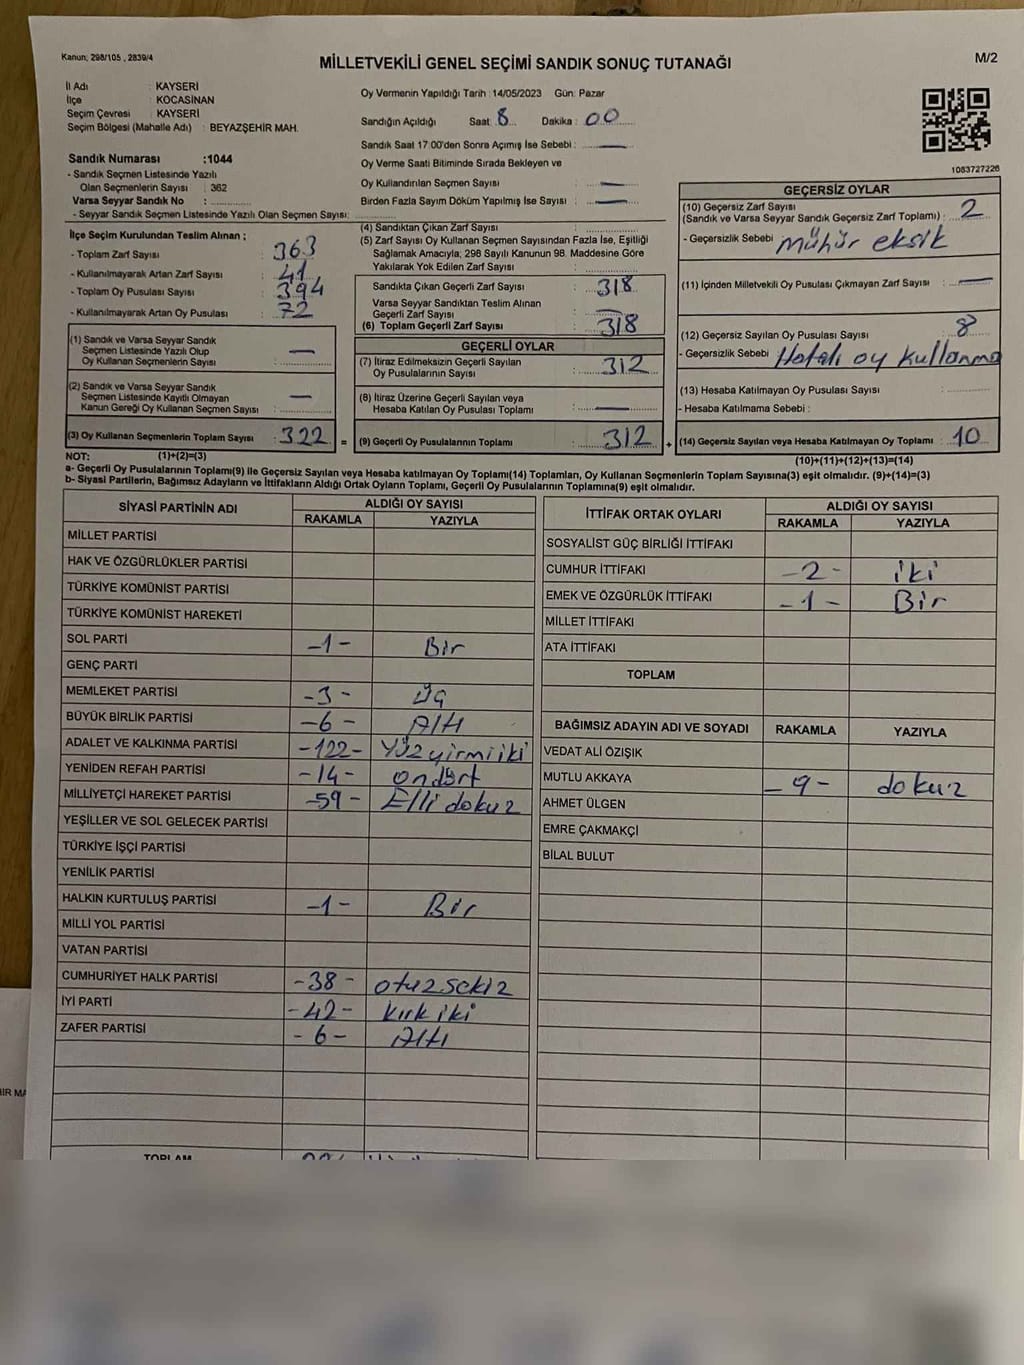 Kanun; 298/105 , 2839/4
MİLLETVEKİLİ GENEL SEÇİMİ SANDIK SONUÇ TUTANAĞI
M/2
İl Adı : KAYSERİ
İlçe : KOCASİNAN
Seçim Çevresi : KAYSERİ
Seçim Bölgesi (Mahalle Adı) : BEYAZŞEHİR MAH.
Sandık Numarası :1044
- Sandık Seçmen Listesinde Yazılı
Olan Seçmenlerin Sayısı : 362
Varsa Seyyar Sandık No :
- Seyyar Sandık Seçmen Listesinde Yazılı Olan Seçmen Sayısı:
Oy Vermenin Yapıldığı Tarih : 14/05/2023 Gün: Pazar
Sandığın Açıldığı Saat : 8 Dakika : 00
Sandık Saat 17:00'den Sonra Açımış İse Sebebi : —
Oy Verme Saati Bitiminde Sırada Bekleyen ve
Oy Kullandırılan Seçmen Sayısı : —
Birden Fazla Sayım Döküm Yapılmış İse Sayısı : —
1083727226
İlçe Seçim Kurulundan Teslim Alınan ;
- Toplam Zarf Sayısı : 363
- Kullanılmayarak Artan Zarf Sayısı : 41
- Toplam Oy Pusulası Sayısı : 394
- Kullanılmayarak Artan Oy Pusulası : 72
(1) Sandık ve Varsa Seyyar Sandık
Seçmen Listesinde Yazılı Olup
Oy Kullanan Seçmenlerin Sayısı : —
(2) Sandık ve Varsa Seyyar Sandık
Seçmen Listesinde Kayıtlı Olmayan
Kanun Gereği Oy Kullanan Seçmen Sayısı : —
(3) Oy Kullanan Seçmenlerin Toplam Sayısı : 322 =
(4) Sandıktan Çıkan Zarf Sayısı :
(5) Zarf Sayısı Oy Kullanan Seçmen Sayısından Fazla İse, Eşitliği
Sağlamak Amacıyla; 298 Sayılı Kanunun 98. Maddesine Göre
Yakılarak Yok Edilen Zarf Sayısı :
Sandıkta Çıkan Geçerli Zarf Sayısı : 318
Varsa Seyyar Sandıktan Teslim Alınan
Geçerli Zarf Sayısı : —
(6) Toplam Geçerli Zarf Sayısı : 318
GEÇERLİ OYLAR
(7) İtiraz Edilmeksizin Geçerli Sayılan
Oy Pusulalarının Sayısı : 312
(8) İtiraz Üzerine Geçerli Sayılan veya
Hesaba Katılan Oy Pusulası Toplamı : —
(9) Geçerli Oy Pusulalarının Toplamı : 312 +
GEÇERSİZ OYLAR
(10) Geçersiz Zarf Sayısı
(Sandık ve Varsa Seyyar Sandık Geçersiz Zarf Toplamı) : 2
- Geçersizlik Sebebi : mühür eksik
(11) İçinden Milletvekili Oy Pusulası Çıkmayan Zarf Sayısı : —
(12) Geçersiz Sayılan Oy Pusulası Sayısı : 8
- Geçersizlik Sebebi : Hatalı oy kullanma
(13) Hesaba Katılmayan Oy Pusulası Sayısı :
- Hesaba Katılmama Sebebi :
(14) Geçersiz Sayılan veya Hesaba Katılmayan Oy Toplamı : 10
NOT: (1)+(2)=(3) (10)+(11)+(12)+(13)=(14)
a- Geçerli Oy Pusulalarının Toplamı(9) ile Geçersiz Sayılan veya Hesaba katılmayan Oy Toplamı(14) Toplamları, Oy Kullanan Seçmenlerin Toplam Sayısına(3) eşit olmalıdır. (9)+(14)=(3)
b- Siyasi Partilerin, Bağımsız Adayların ve İttifakların Aldığı Ortak Oyların Toplamı, Geçerli Oy Pusulalarının Toplamına(9) eşit olmalıdır.
SİYASİ PARTİNİN ADI ALDIĞI OY SAYISI
RAKAMLA YAZIYLA
MİLLET PARTİSİ
HAK VE ÖZGÜRLÜKLER PARTİSİ
TÜRKİYE KOMÜNİST PARTİSİ
TÜRKİYE KOMÜNİST HAREKETİ
SOL PARTİ -1- Bir
GENÇ PARTİ
MEMLEKET PARTİSİ -3- Üç
BÜYÜK BİRLİK PARTİSİ -6- Altı
ADALET VE KALKINMA PARTİSİ -122- Yüzyirmiiki
YENİDEN REFAH PARTİSİ -14- ondört
MİLLİYETÇİ HAREKET PARTİSİ -59- Elli dokuz
YEŞİLLER VE SOL GELECEK PARTİSİ
TÜRKİYE İŞÇİ PARTİSİ
YENİLİK PARTİSİ
HALKIN KURTULUŞ PARTİSİ -1- Bir
MİLLİ YOL PARTİSİ
VATAN PARTİSİ
CUMHURİYET HALK PARTİSİ -38- otuzsekiz
İYİ PARTİ -42- kırk iki
ZAFER PARTİSİ -6- Altı
TOPLAM
İTTİFAK ORTAK OYLARI ALDIĞI OY SAYISI
RAKAMLA YAZIYLA
SOSYALİST GÜÇ BİRLİĞİ İTTİFAKI
CUMHUR İTTİFAKI -2- iki
EMEK VE ÖZGÜRLÜK İTTİFAKI -1- Bir
MİLLET İTTİFAKI
ATA İTTİFAKI
TOPLAM
BAĞIMSIZ ADAYIN ADI VE SOYADI RAKAMLA YAZIYLA
VEDAT ALİ ÖZIŞIK
MUTLU AKKAYA -9- dokuz
AHMET ÜLGEN
EMRE ÇAKMAKÇİ
BİLAL BULUT